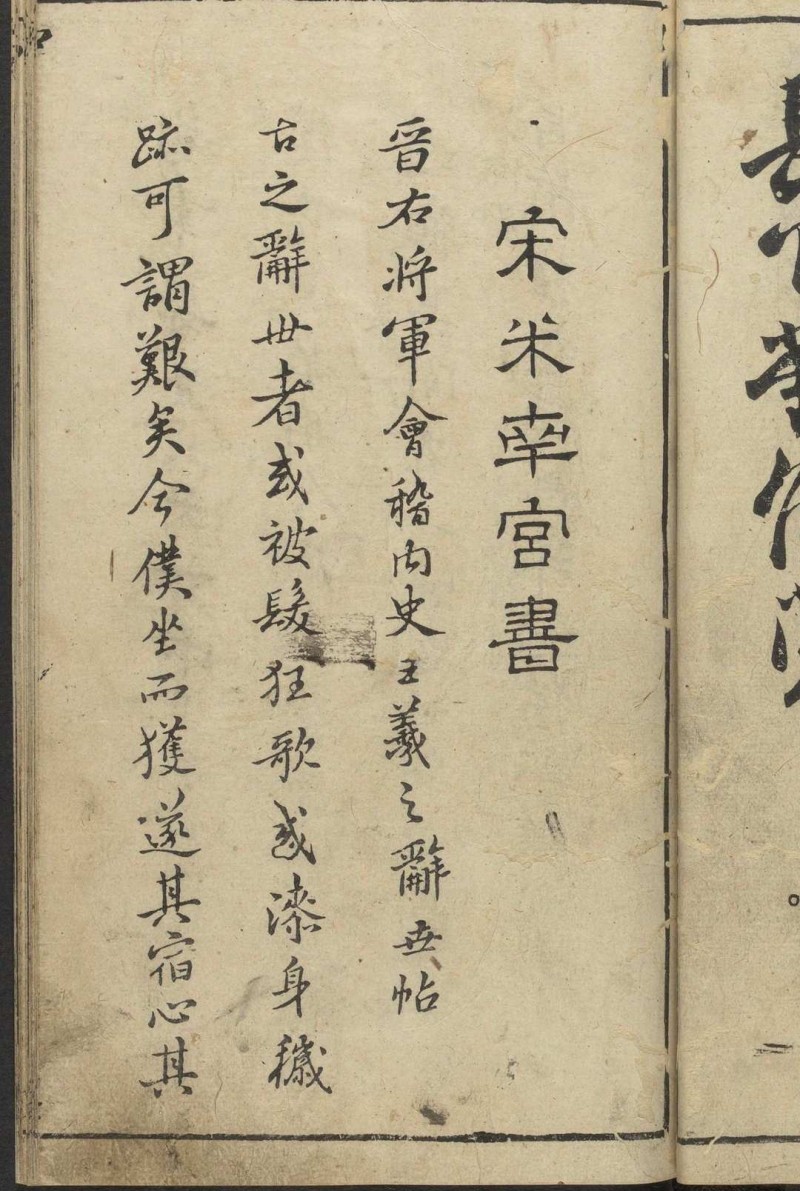 宋米南宮書
晉右將軍會稽內史王羲之辭世帖
古之辭世者或被髮狂歌或漆身穢
跡可謂艱矣今僕坐而獲遂其宿心其